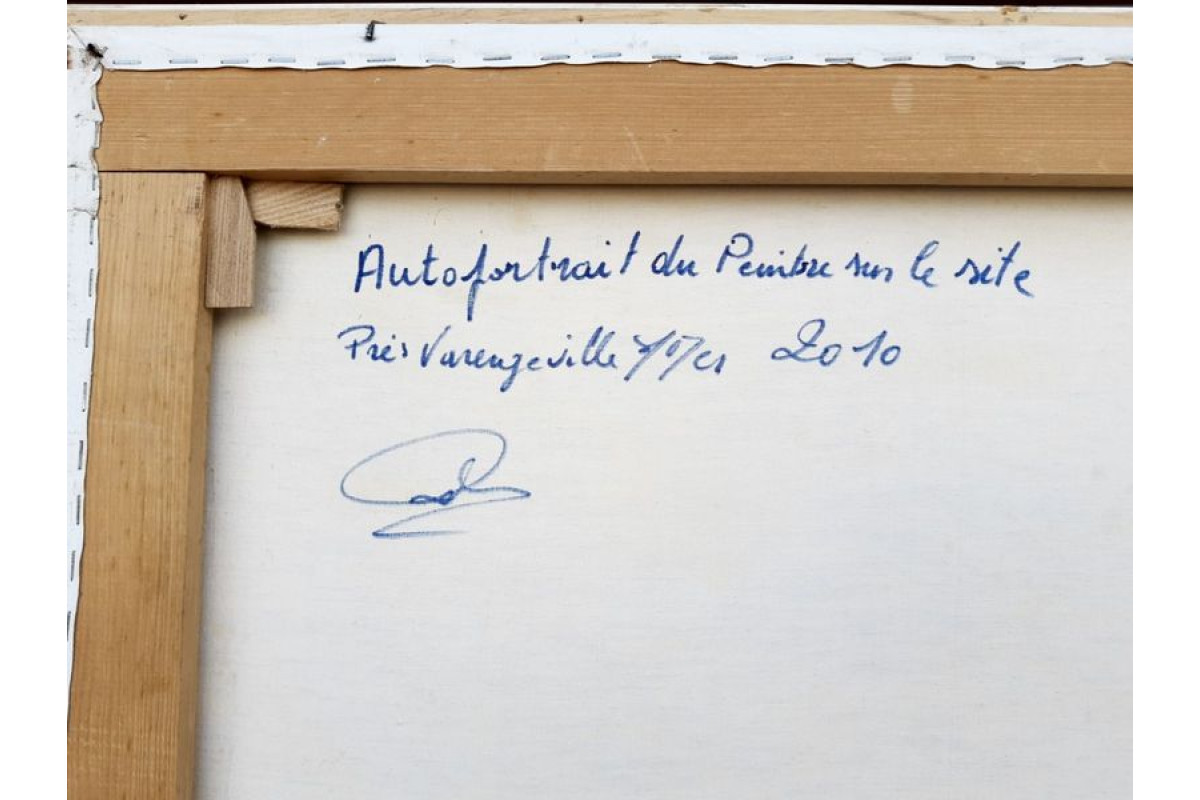 Autoportrait du Peintre sur le site
Près Varengeville s/Mer 2010